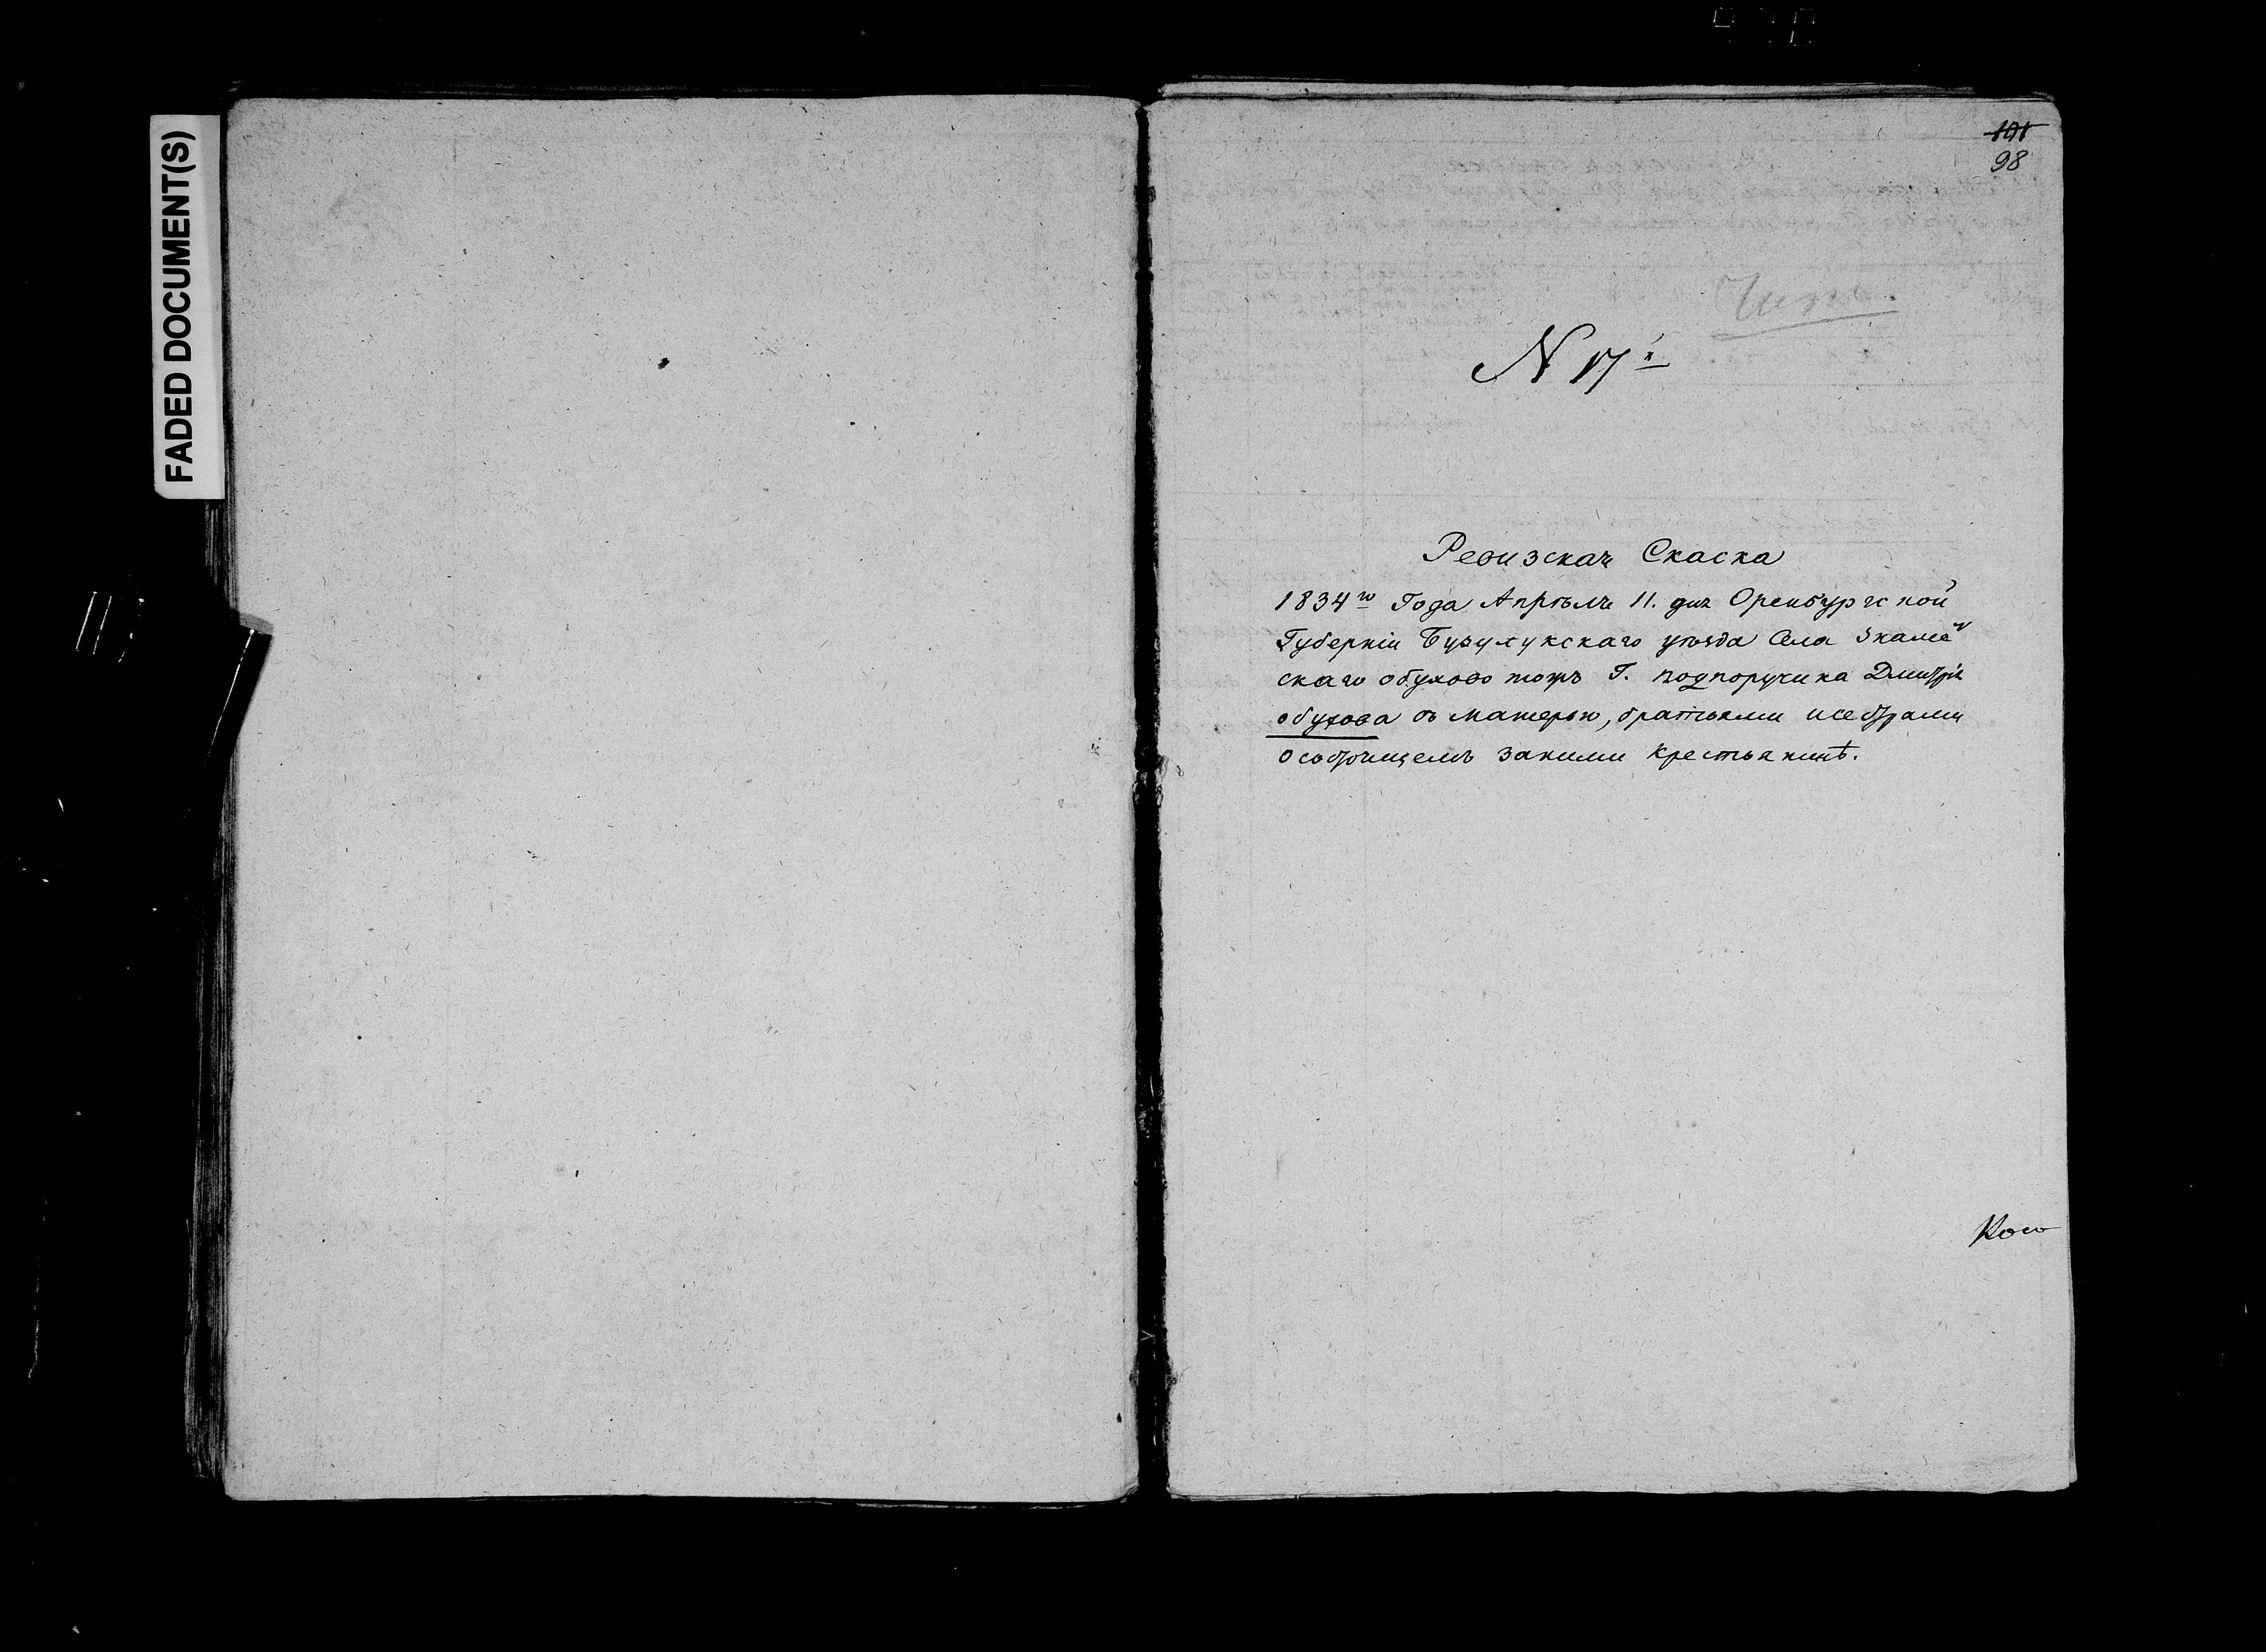 FADED DOCUMENT(S)
101
98
N 17й
Ревизская Скаска
1834го Года Апрѣля 11. дня Оренбургской
Губерніи Бузулукскаго уѣзда Села Знамен
скаго обухово тожъ Г. подпоручика Дмитрія
обухова съ матерью, братьями исестрами
особоящемъ заними крестьянинѣ.